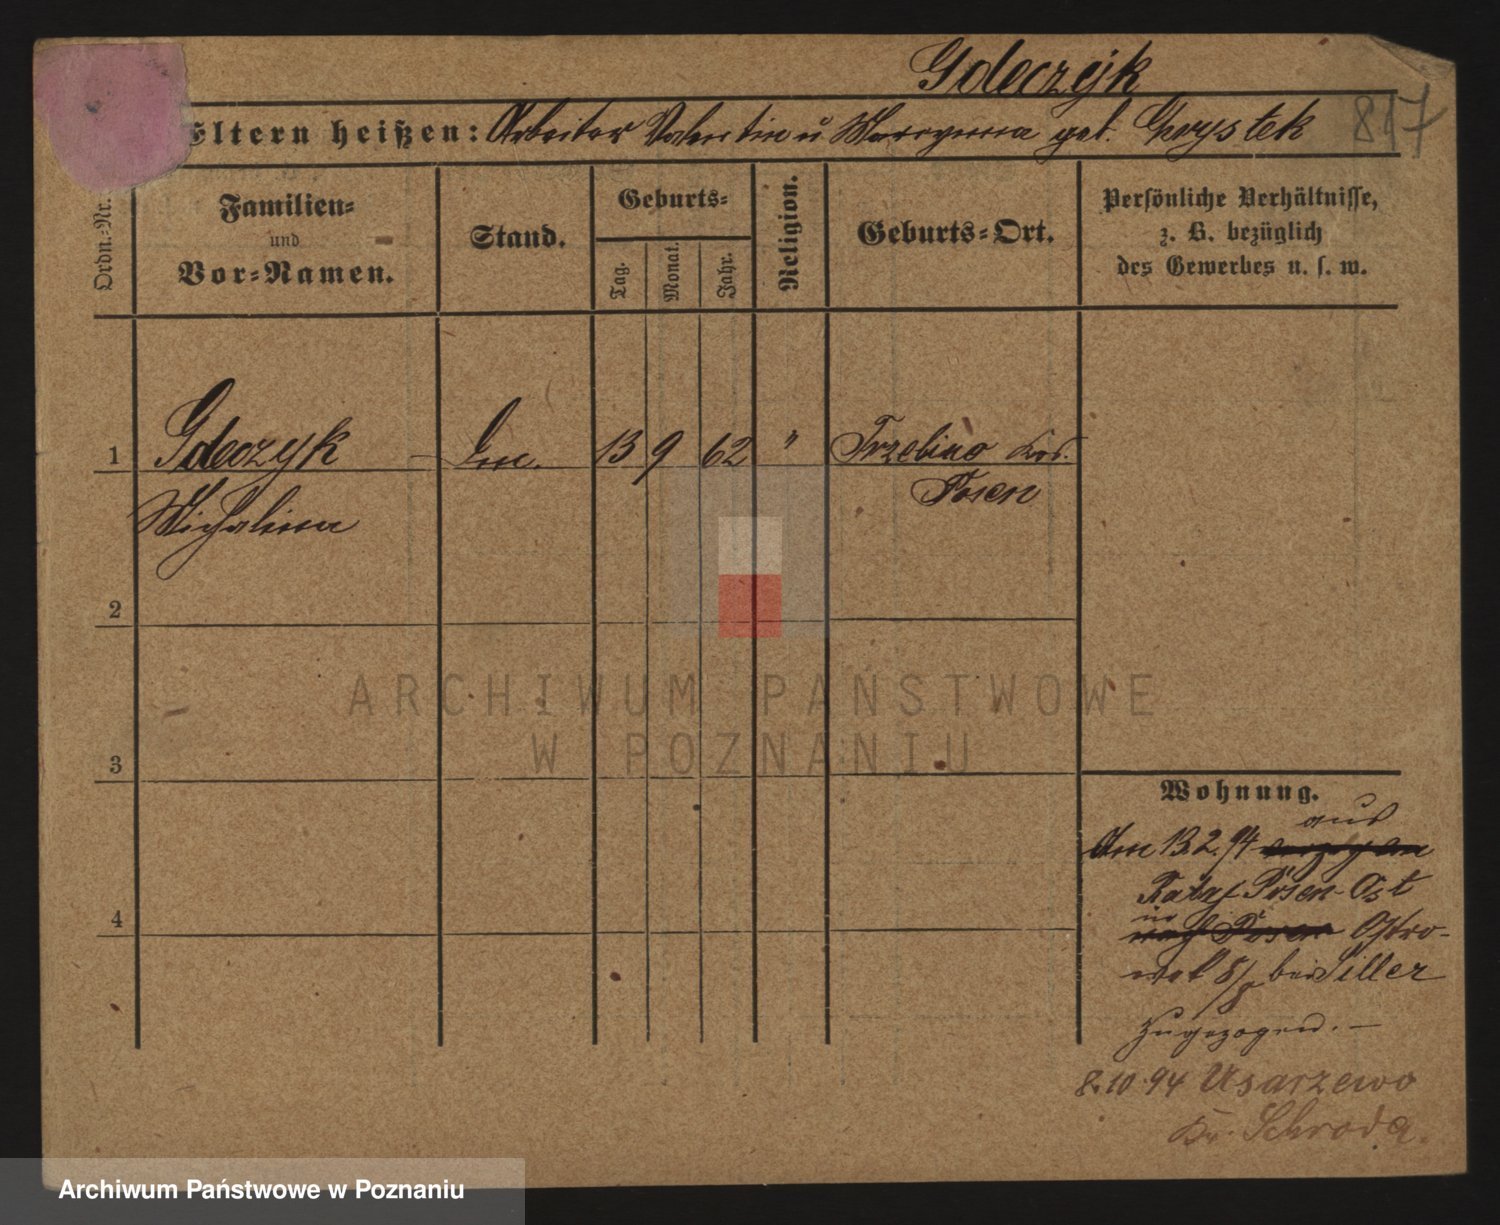 Gdeczyk
817
Eltern heißen: Arbeiter Valentin u Maryanna geb. Chrystek
Ordn.-Nr.
Familien-
und
Vor-Namen.
Stand.
Geburts-
Tag.
Monat.
Jahr.
Religion.
Geburts-Ort.
Persönliche Verhältnisse,
z. B. bezüglich
des Gewerbes u. s. w.
1
Gdeczyk
Michalina
13 9 62 "
Trzebino
Posen
2
3
4
ARCHIWUM PAŃSTWOWE
W POZNANIU
Wohnung.
aus
Am 13.2.94
Rataj Posen-Ost
in
nach Posen Ostro-
wek 8/8 bei Siller
zugezogen. —
8.10.94 Usarzewo
Kr. Schroda.
Archiwum Państwowe w Poznaniu